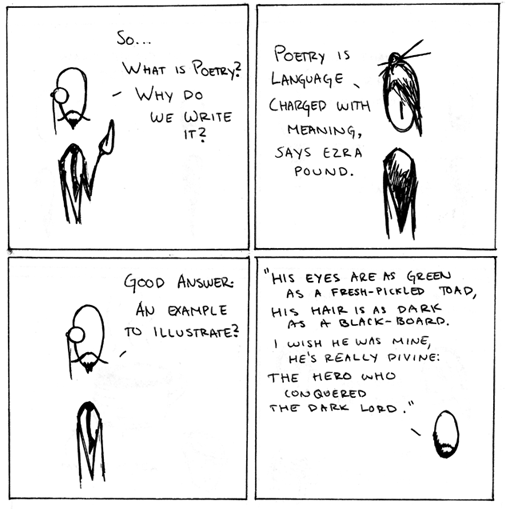 So...
What is Poetry?
Why do
we write
it?
Poetry is
language
charged with
meaning,
says Ezra
Pound.
Good answer.
An example
to illustrate?
"His eyes are as green
as a fresh-pickled toad,
his hair is as dark
as a black-board.
I wish he was mine,
he's really divine:
the hero who
conquered
the Dark Lord."